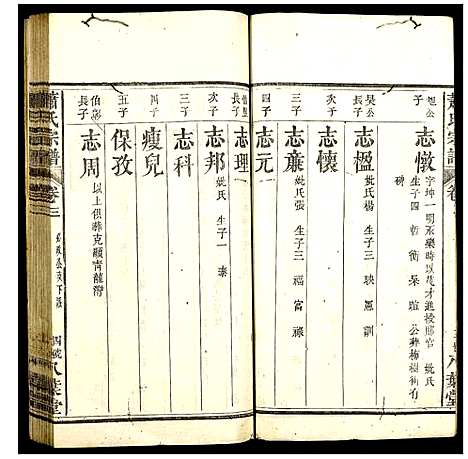 蕭氏宗譜
旭公子
志墩
字坤一明永樂時以茂才進授縣官 妣氏
生子四 哲 衡 榮 瑄 公葬梅樹街有
碑
昊公長子
志楹
妣氏楊 生子三 映 訓
次子
志懷
三子
志廉
妣氏張 生子三 福 富 祿
四子
志元
長子
志理
次子
志邦
妣氏 生子一 泰
三子
志科
四子
瘦兒
五子
保孜
長子
志周
以上俱葬克顯青龍灣
蕭氏宗譜
卷三
四號
八葉堂